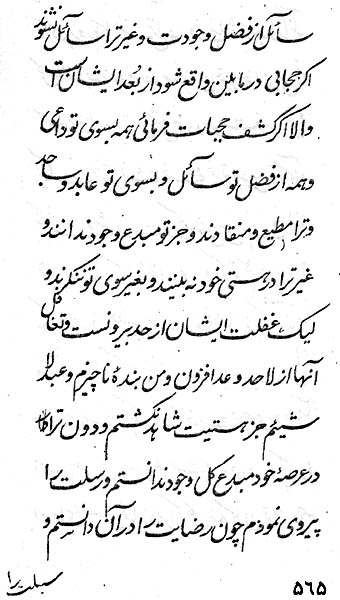 سائل از فضل وجودت و غیر ترا سائل نشوند
اگر حجابی در مابین واقع شود از بُعد ایشان است
والا اگر کشف حجبات فرمائی همه بسوی تو داعی
و همه از فضل تو سائل و بسوی تو عابد و ساجد
و ترا مطیع و منقادند و جز تو مبدع وجود ندانند و
غیر ترا در هستی خود نه بینند و بغیر سوی تو ننگرند و
لیک غفلت ایشان از حد بیرونست و تغافل
آنها از لاحد و عد افزون و من بندهٔ ناچیزم و عبد لا
شیئم جز هستیت شاهد نگشتم و دون ترا
در عرصهٔ خود مبدع کل وجود ندانستم و رسلت را
پیروی نمودم چون رضایت را در آن دانستم و
سبلت را
۵۶۵